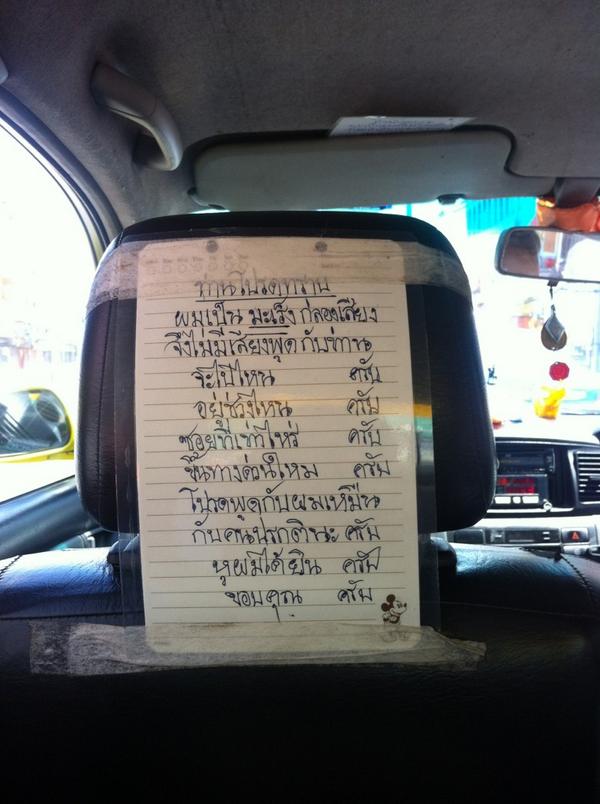 ท่านโปรดทราบ
ผมเป็น มะเร็ง กล่องเสียง
จึงไม่มีเสียงพูด กับท่าน
จะไปไหน ครับ
อยู่ช่วงไหน ครับ
ซอยที่เท่าไหร่ ครับ
ขึ้นทางด่วนไหม ครับ
โปรดพูดกับผมเหมือน
กับคนปรกตินะ ครับ
หูผมได้ยิน ครับ
ขอบคุณ ครับ